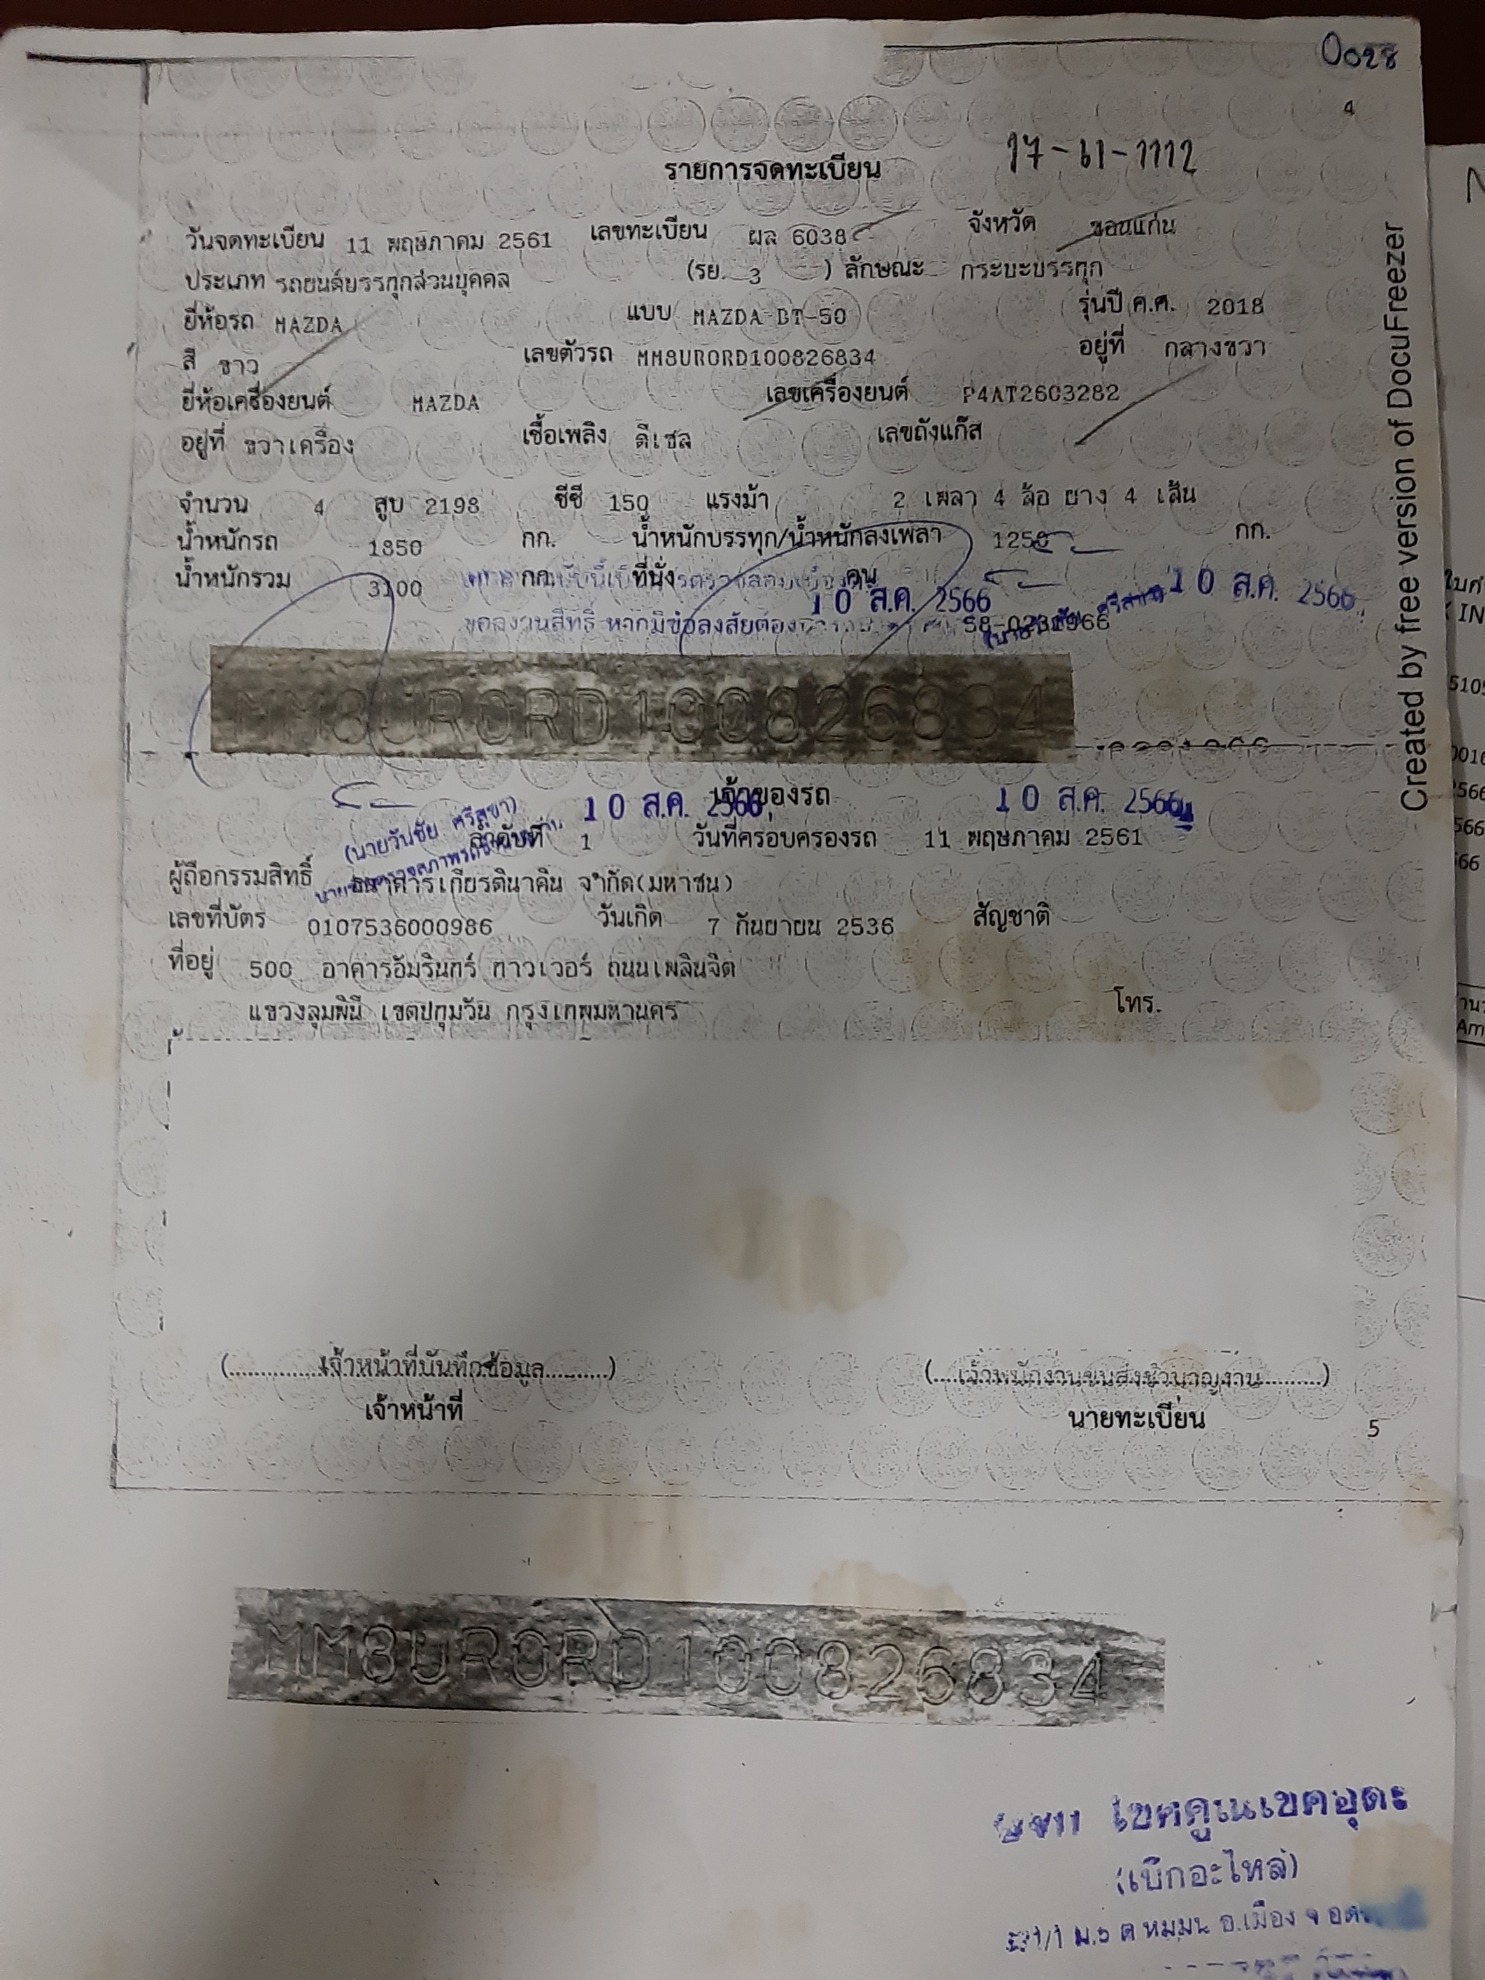 0028
4
รายการจดทะเบียน 17-61-1112
วันจดทะเบียน 11 พฤษภาคม 2561 เลขทะเบียน ผล 6038 จังหวัด ขอนแก่น
ประเภท รถยนต์บรรทุกส่วนบุคคล (รย. 3 ) ลักษณะ กระบะบรรทุก
ยี่ห้อรถ MAZDA แบบ MAZDA BT-50 รุ่นปี ค.ศ. 2018
สี ขาว เลขตัวรถ MM8UR0RD100826834 อยู่ที่ กลางขวา
ยี่ห้อเครื่องยนต์ MAZDA เลขเครื่องยนต์ P4AT2603282
อยู่ที่ ขวาเครื่อง เชื้อเพลิง ดีเซล เลขถังแก๊ส
จำนวน 4 สูบ 2198 ซีซี 150 แรงม้า 2 เพลา 4 ล้อ ยาง 4 เส้น
น้ำหนักรถ 1850 กก. น้ำหนักบรรทุก/น้ำหนักลงเพลา 1250 กก.
น้ำหนักรวม 3100 กก. ที่นั่ง คน
10 ส.ค. 2566 10 ส.ค. 2566
ขอสงวนสิทธิ์ หากมีข้อสงสัยต้อง
MM8UR0RD100826834
เจ้าของรถ
10 ส.ค. 2566 10 ส.ค. 2566
(นายวันชัย ศรีสุขา)
ลำดับที่ 1 วันที่ครอบครองรถ 11 พฤษภาคม 2561
ผู้ถือกรรมสิทธิ์ ธนาคารเกียรตินาคิน จำกัด(มหาชน)
เลขที่บัตร 0107536000986 วันเกิด 7 กันยายน 2536 สัญชาติ
ที่อยู่ 500 อาคารอัมรินทร์ ทาวเวอร์ ถนนเพลินจิต
แขวงลุมพินี เขตปทุมวัน กรุงเทพมหานคร โทร.
(................เจ้าหน้าที่บันทึกข้อมูล..........) (....เจ้าพนักงานขนส่งชำนาญงาน..........)
เจ้าหน้าที่ นายทะเบียน
5
MM8UR0RD100826834
(เบิกอะไหล่)
อ.เมือง
Created by free version of DocuFreezer